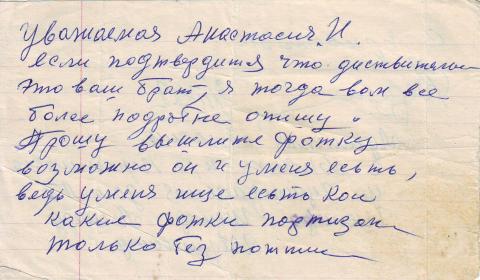 Уважаемая Анастасия, И.
если подтвердится что диствительно
это ваш брат, я тогда вам все
более подробне опишу.
Прошу вышелите фотку
возможно он и уменя есьть,
ведь уменя ище есьть кои
какие фотки партизан
только без